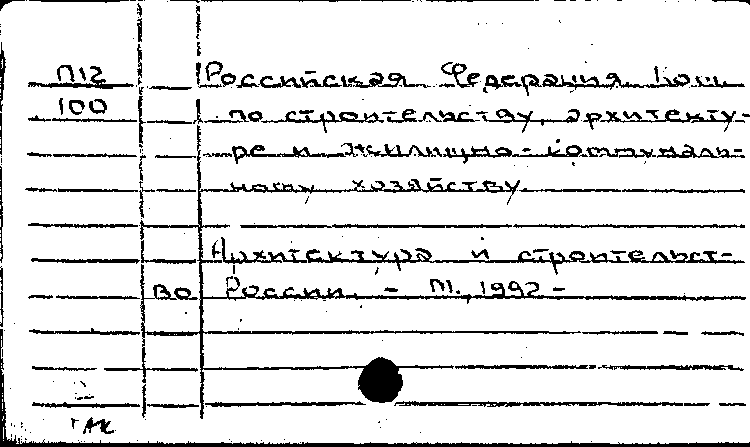 П12 Российская Федерация. Ком.
100 по строительству, архитекту-
ре и жилищно-коммуналь-
ному хозяйству.
Архитектура и строительст-
во России. - М., 1992 -